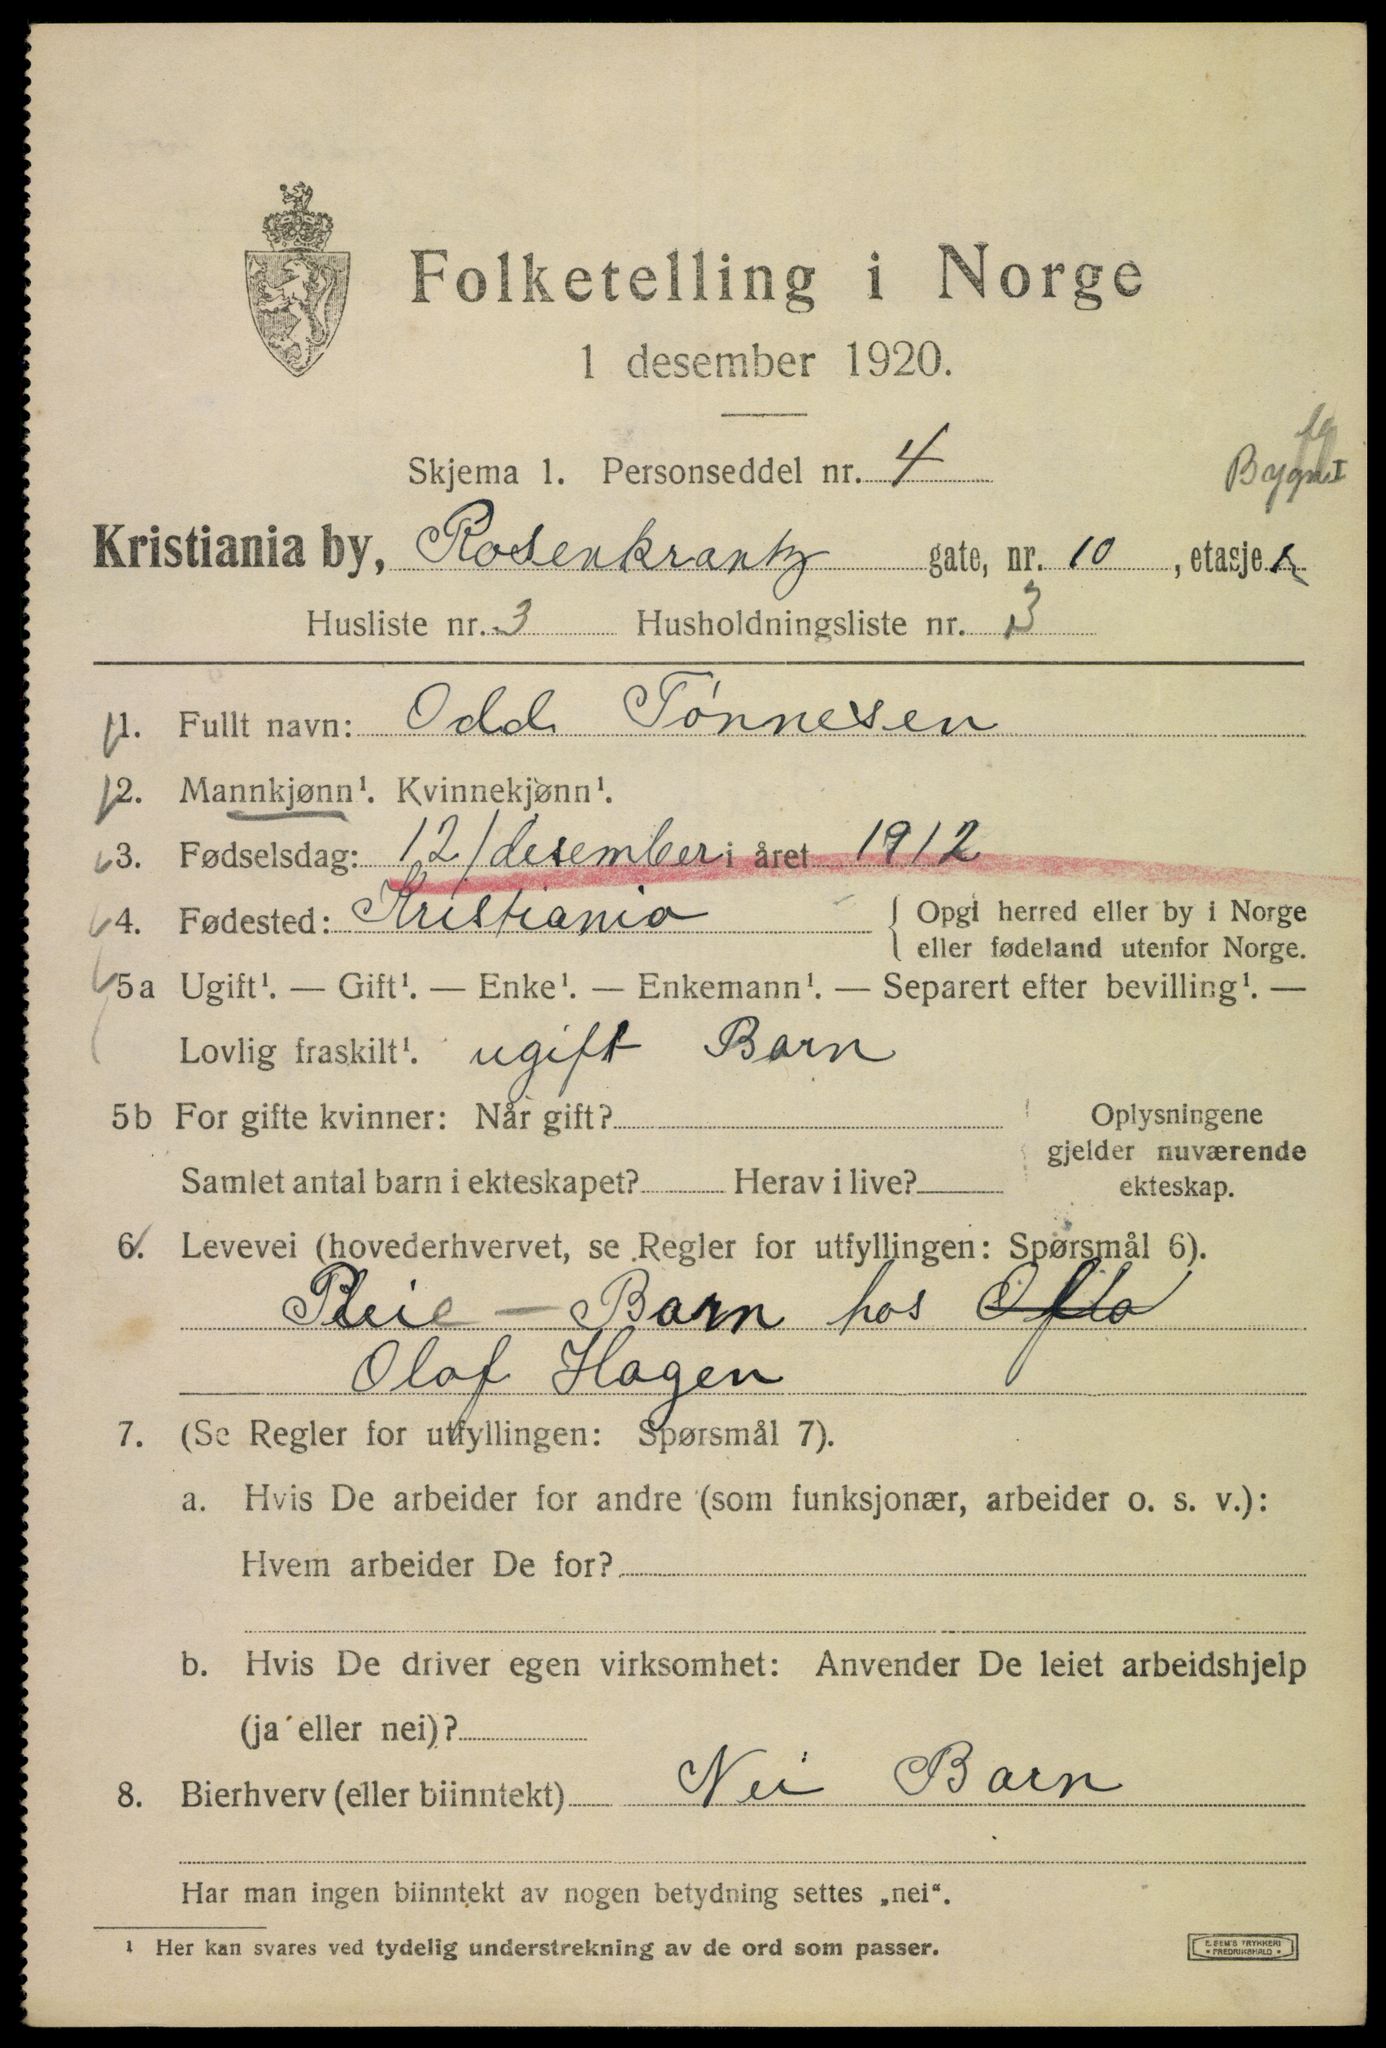 Folketelling i Norge
1 desember 1920.
Skjema 1. Personseddel nr. 4
Bygn I
Kristiania by, Rosenkrantz gate, nr. 10, etasje
Husliste nr. 3 Husholdningsliste nr. 3
1. Fullt navn: Odd Tønnesen
2. Mannkjønn¹. Kvinnekjønn¹.
3. Fødselsdag: 12/desember i året 1912
4. Fødested: Kristiania { Opgi herred eller by i Norge
eller fødeland utenfor Norge.
5a Ugift¹. — Gift¹. — Enke¹. — Enkemann¹. — Separert efter bevilling¹. —
Lovlig fraskilt¹. ugift Barn
5b For gifte kvinner: Når gift? Oplysningene
gjelder nuværende
Samlet antal barn i ekteskapet? Herav i live? ekteskap.
6. Levevei (hovederhvervet, se Regler for utfyllingen: Spørsmål 6).
Pleie-Barn hos
Olaf Hagen
7. (Se Regler for utfyllingen: Spørsmål 7).
a. Hvis De arbeider for andre (som funksjonær, arbeider o. s. v.):
Hvem arbeider De for?
b. Hvis De driver egen virksomhet: Anvender De leiet arbeidshjelp
(ja eller nei)?
8. Bierhverv (eller biinntekt) Nei Barn
Har man ingen biinntekt av nogen betydning settes „nei“.
¹ Her kan svares ved tydelig understrekning av de ord som passer.
E. SEM'S TRYKKERI
• FREDRIKSHALD •